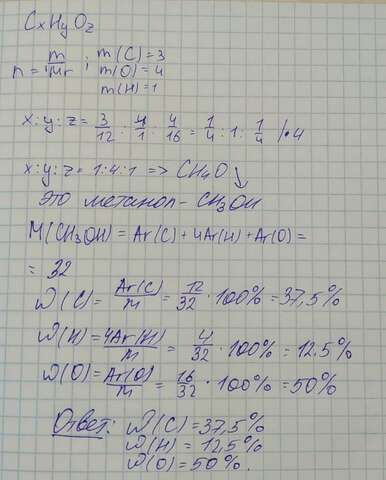 CxHyOz
n = m/Mr ; m(C) = 3
m(O) = 4
m(H) = 1
x:y:z = 3/12 : 4/1 : 4/16 = 1/4 : 1 : 1/4 |·4
x:y:z = 1:4:1 => CH4O
Это метанол - CH3OH
M(CH3OH) = Ar(C) + 4Ar(H) + Ar(O) =
= 32
W(C) = Ar(C)/M = 12/32 · 100% = 37,5%
W(H) = 4Ar(H)/M = 4/32 · 100% = 12.5%
W(O) = Ar(O)/M = 16/32 · 100% = 50%
Ответ: W(C) = 37,5%
W(H) = 12,5%
W(O) = 50%.